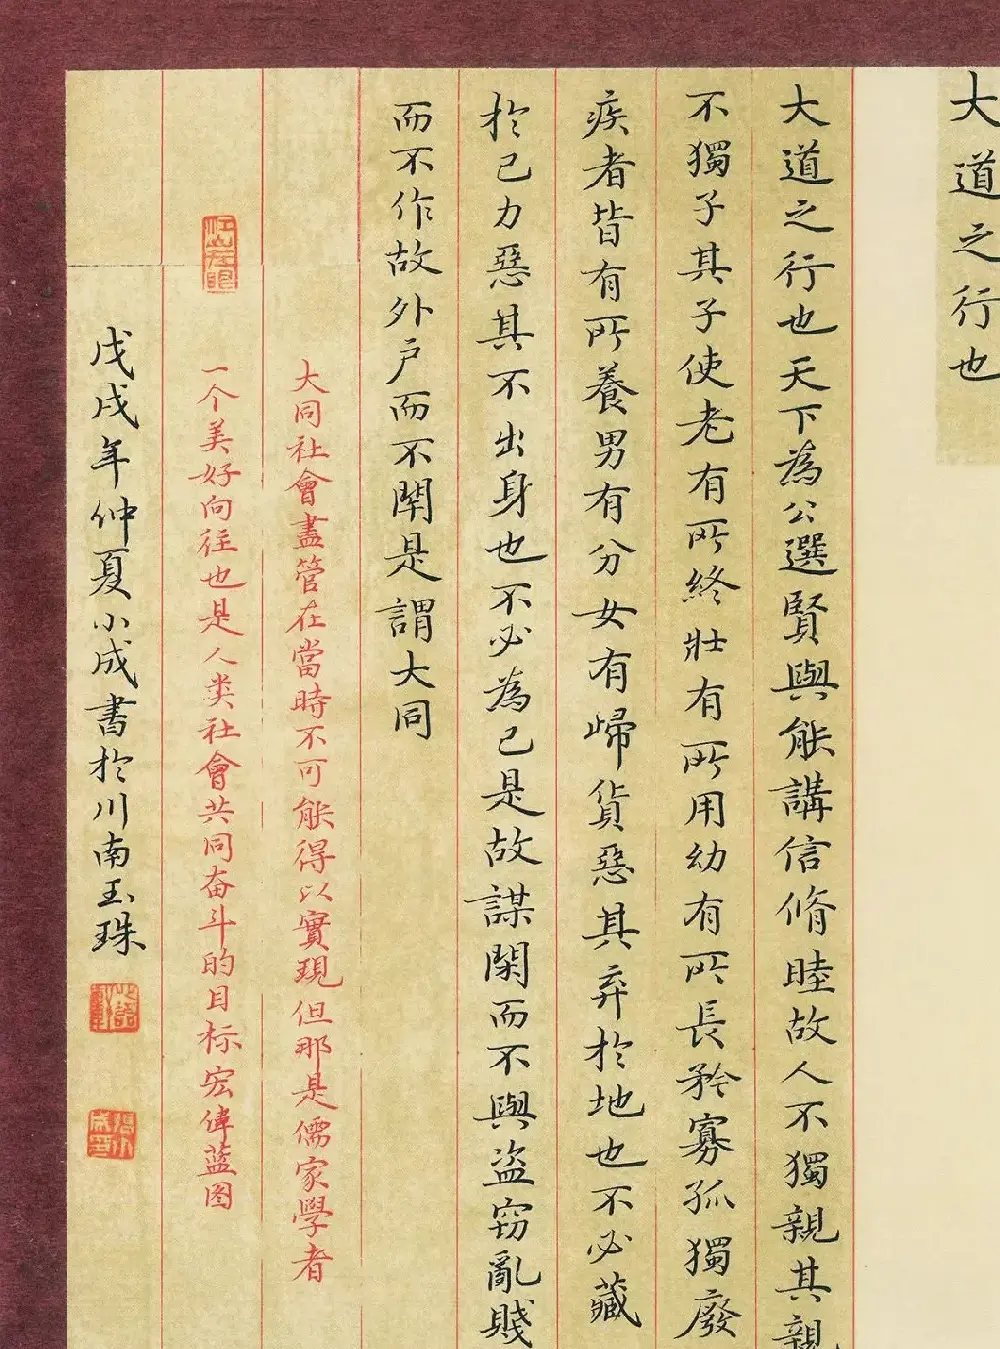 大道之行也
大道之行也天下為公選賢與能講信脩睦故人不獨親其親
不獨子其子使老有所終壯有所用幼有所長矜寡孤獨廢
疾者皆有所養男有分女有歸貨惡其弃於地也不必藏
於己力惡其不出身也不必為己是故謀閑而不與盜窃亂賤
而不作故外户而不閈是謂大同
大同社會盡管在當時不可能得以實現但那是儒家學者
一个美好向往也是人类社會共同奋斗的目标宏偉蓝图
戊戌年仲夏小成書於川南玉珠